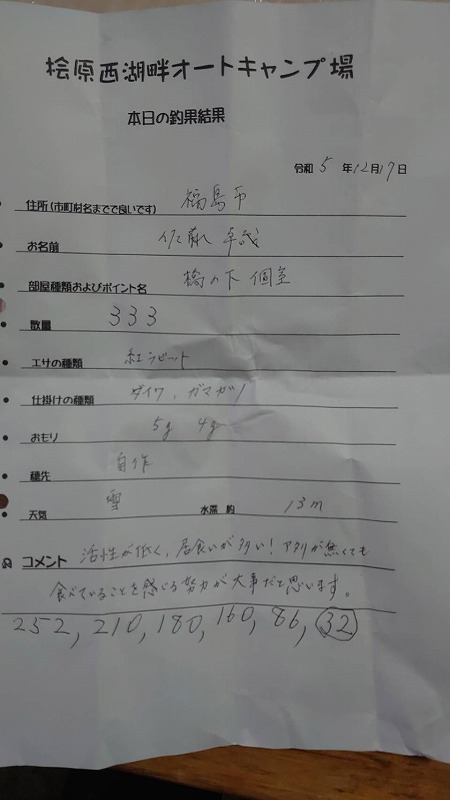 桧原西湖畔オートキャンプ場
本日の釣果結果
令和 5 年12月17日
住所(市町村名までで良いです) 福島市
お名前 佐藤
部屋種類およびポイント名 橋の下 個室
数量 333
エサの種類 紅ラビット
仕掛けの種類 ダイワ、ガマカツ
おもり 5g 4g
穂先 自作
天気 雪 水深 約 13m
コメント 活性が低く、居食いが多い!アタリが無くても
食べていることを感じる努力が大事だと思います。
252, 210, 180, 160, 86, 32